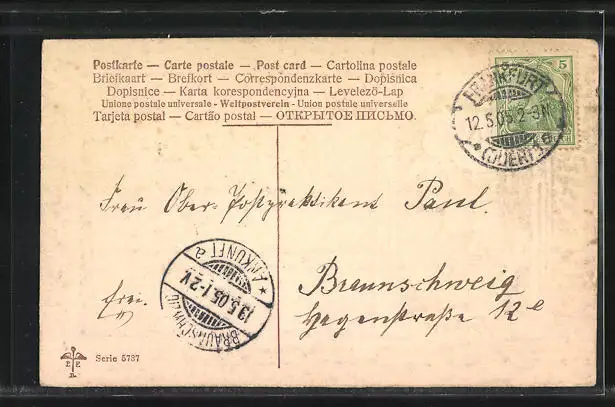 Postkarte — Carte postale — Post card — Cartolina postale
Briefkaart — Brefkort — Correspondenzkarte — Dopisnica
Dopisnice — Karta korespondencyjna — Levelező-Lap
Unione postale universale - Weltpostverein - Union postale universelle
Tarjeta postal — Cartão postal — ОТКРЫТОЕ ПИСЬМО.
5
FRANKFURT
12.5.05.2-3N
* (ODER) *
Frau Ober-Postpraktikant Paul.
* ANKUNFT a
13.5.05.1-2V
BRAUNSCHWEIG
frei.
Braunschweig
Hagenstraße 12e
P. P.
Serie 5737